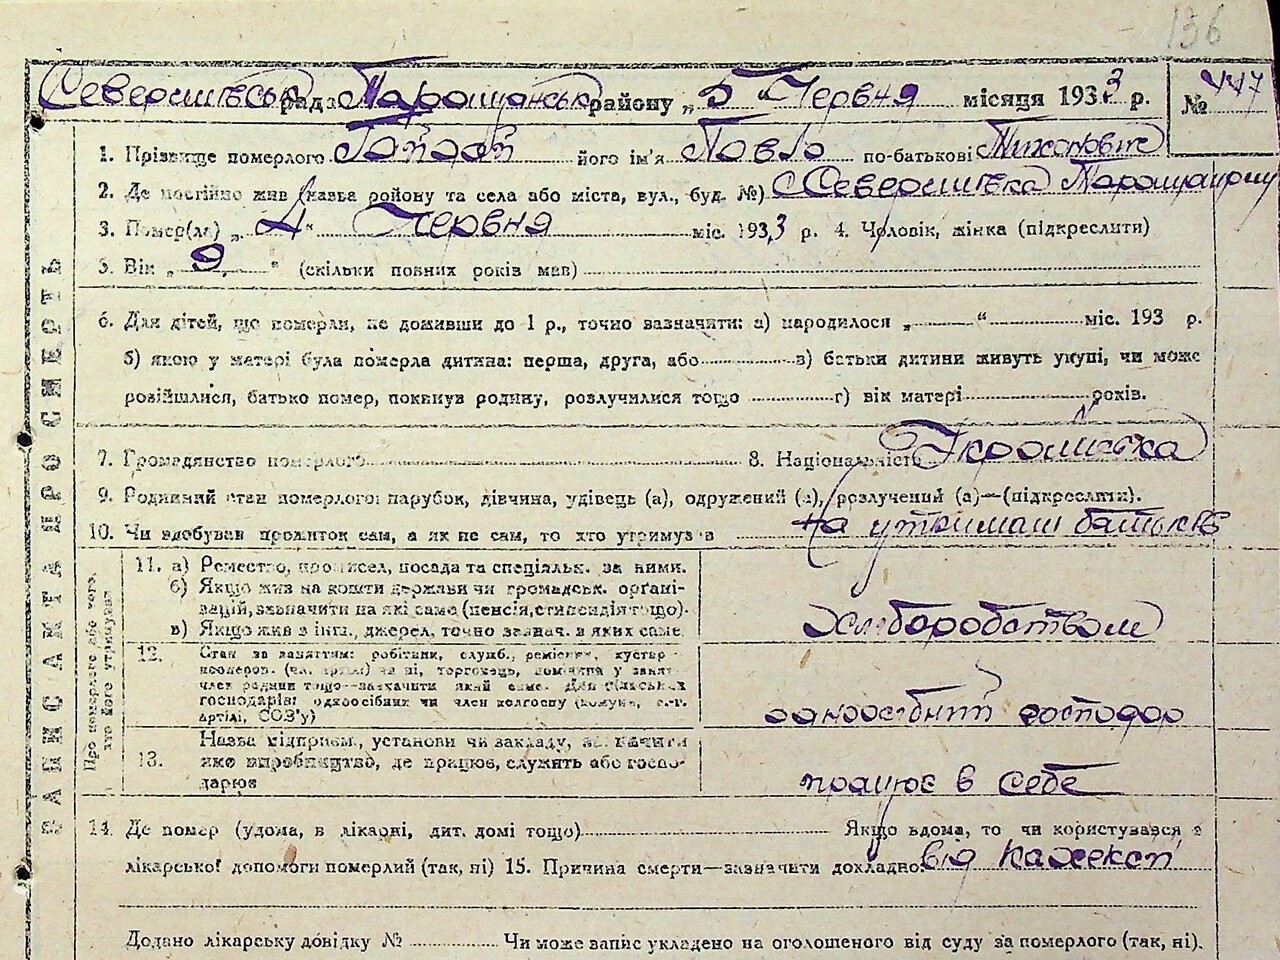 136
Северинівська рада Таращанськ району „5“ Червня місяця 1933 р. № 447
1. Прізвище померлого його ім'я Павло по-батькові Тихонович
2. Де постійно жив (назва району та села або міста, вул., буд. №) с Северинівка Таращ
3. Помер(ла) „4“ Червня міс. 1933 р. 4. Чоловік, жінка (підкреслити)
5. Вік „9“ (скільки повних років мав)
6. Для дітей, що померли, не доживши до 1 р., точно зазначити: а) народилося „ “ міс. 193 р.
б) якою у матері була померла дитина: перша, друга, або в) батьки дитини живуть укупі, чи може
розійшлися, батько помер, покинув родину, розлучилися тощо г) вік матері років.
7. Громадянство померлого 8. Національність Українська
9. Родинний стан померлого: парубок, дівчина, удівець (а), одружений (а), розлучений (а)—(підкреслити).
10. Чи здобував прожиток сам, а як не сам, то хто утримував на утриман батьків
ЗАПИС АКТА ПРО СМЕРТЬ
Про померлого або того, хто його утримував
11. а) Ремество, промисел, посада та спеціяльн. за ними.
б) Якщо жив на кошти держави чи громадськ. органі-
зацій, зазначити на які саме (пенсія, стипендія тощо).
в) Якщо жив з інш., джерел, точно зазнач. з яких саме.
Хліборобством
12. Стан за заняттям: робітник, служб., ремісник, кустар-
член родини тощо—зазначити який саме. Для сільських
господарів: одноосібник чи член колгоспу (комуни, с.-г.
артілі, СОЗ'у)
одноосібний господар
13. Назва підприєм., установи чи закладу, зазначити
яке виробництво, де працює, служить або госпо-
дарює
працює в себе
14. Де помер (удома, в лікарні, дит. домі тощо) Якщо вдома, то чи користувався з
лікарської допомоги померлий (так, ні) 15. Причина смерти—зазначити докладно від кахексії
Додано лікарську довідку № Чи може запис укладено на оголошеного від суду за померлого (так, ні).